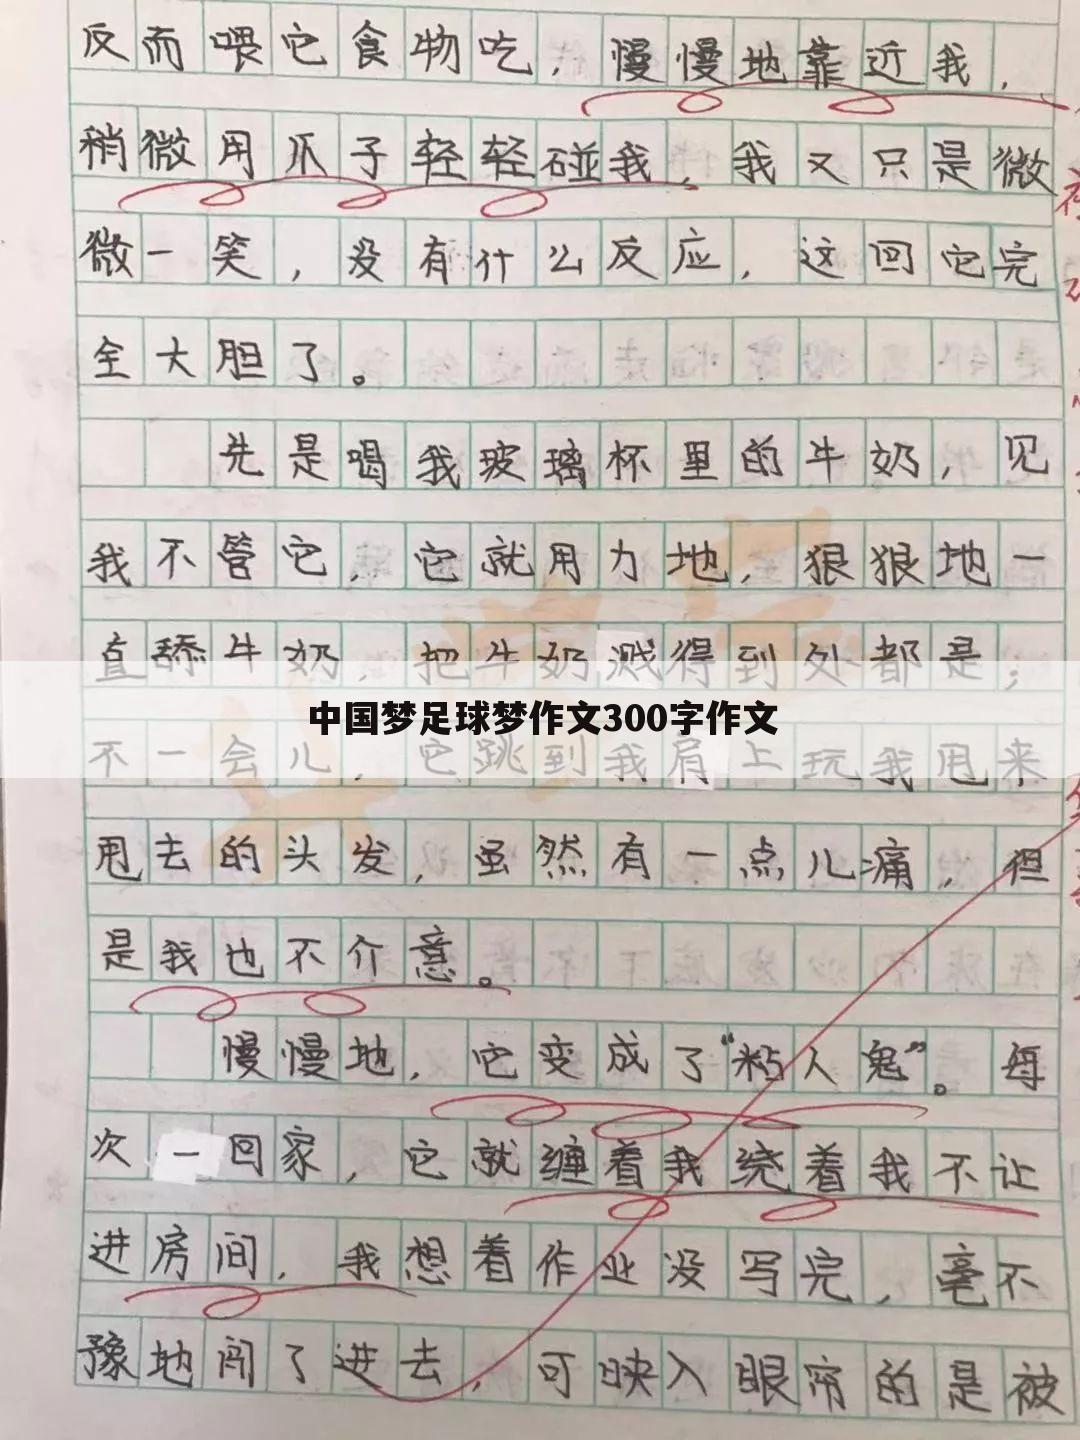 反而喂它食物吃，慢慢地靠近我，
稍微用爪子轻轻碰我，我又只是微
微一笑，没有什么反应，这回它完
全大胆了。
先是喝我玻璃杯里的牛奶，见
我不管它，它就用力地，狠狠地一
直舔牛奶，把牛奶溅得到处都是；
中国梦足球梦作文300字作文
不一会儿，它跳到我肩上玩我甩来
甩去的头发，虽然有一点儿痛，但
是我也不介意。
慢慢地，它变成了“粘人鬼”。每
次一回家，它就缠着我绕着我不让
进房间，我想着作业没写完，毫不
豫地闯了进去，可映入眼帘的是被